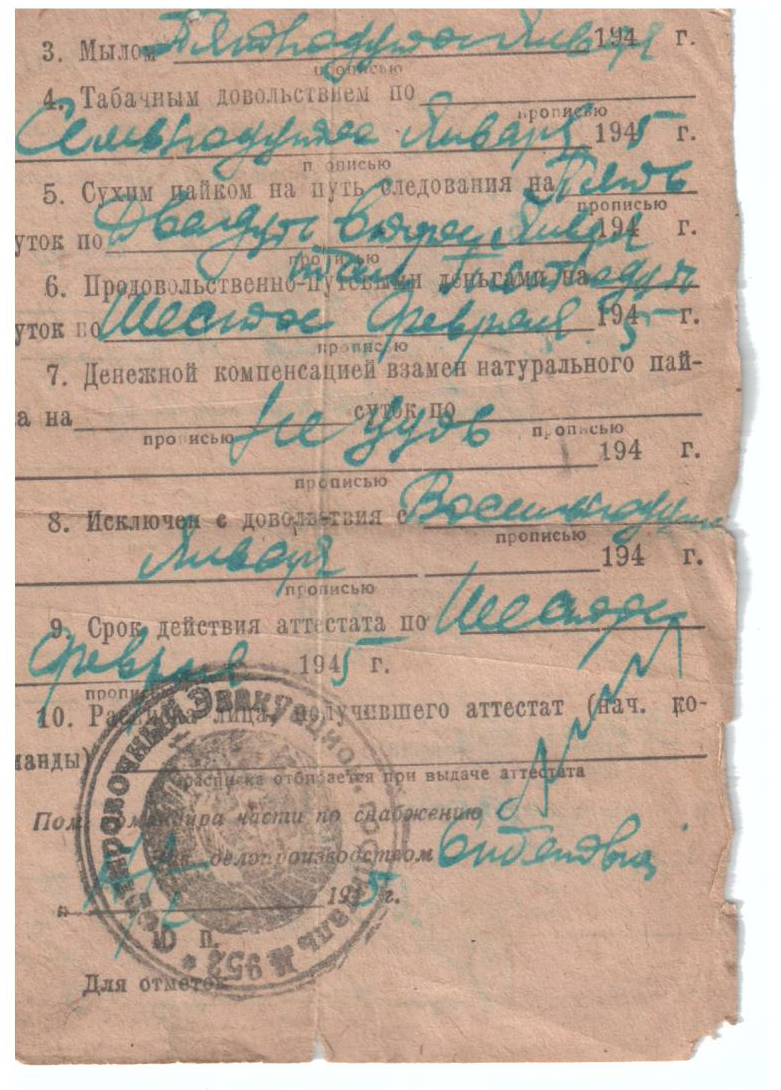 3. Мылом Пятнадцатое Января 194 г.
прописью
4. Табачным довольствием по
прописью
Семьнадцатое Января 1945 г.
прописью
5. Сухим пайком на путь следования на Пять
прописью
уток по Двадцать второе Января 194 г.
прописью
6. Продовольственно-путевыми деньгами на
уток по Шестое Февраля 1945 г.
прописью
7. Денежной компенсацией взамен натурального пай-
а на суток по
прописью не удов прописью
194 г.
прописью
8. Исключен с довольствия с
прописью
Января 194 г.
прописью
9. Срок действия аттестата по Шестое
Февраля 1945 г.
прописью
10. Расписка лица, получившего аттестат (нач. ко-
манды)
расписка отбирается при выдаче аттестата
Пом. командира части по снабжению
Зав. делопроизводством
" 1945 г.
М. П.
Сортировочный Эвакуацион. госпиталь № 952
Для отметок